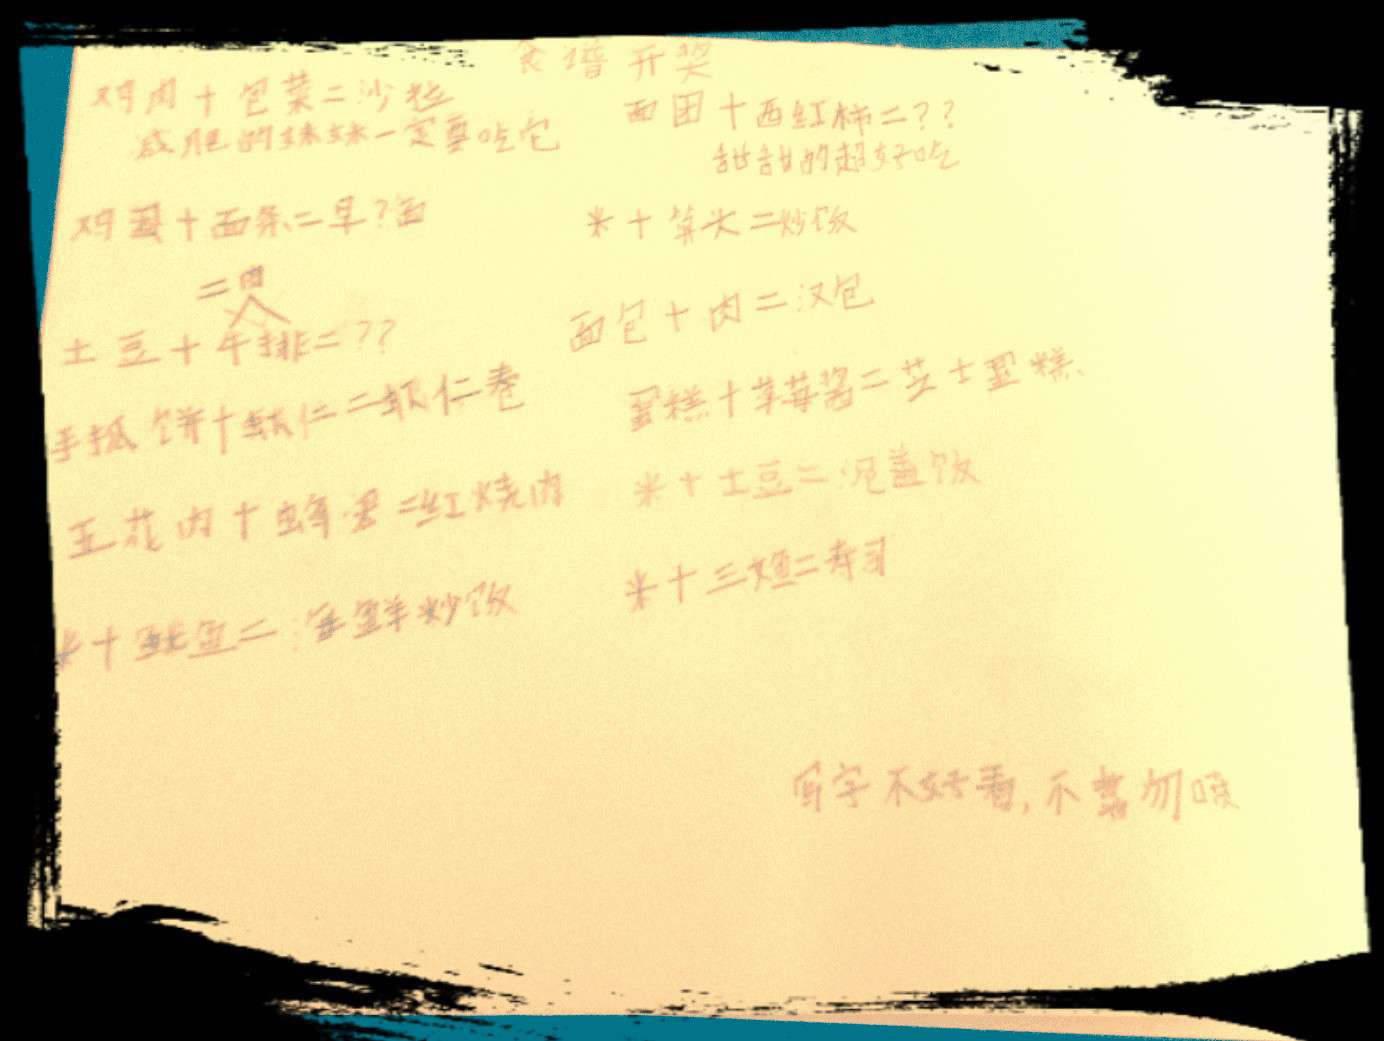 食谱开奖
鸡肉+包菜=沙拉
减肥的妹妹一定要吃它
鸡蛋+面条=早?面
=肉
土豆+牛排=??
手抓饼+虾仁=虾仁卷
五花肉+蜂蜜=红烧肉
米+鱿鱼=海鲜炒饭
面团+西红柿=??
甜甜的超好吃
米+笋尖=炒饭
面包+肉=汉包
蛋糕+草莓酱=芝士蛋糕
米+土豆=泥盖饭
米+三文鱼=寿司
写字不好看,不喜勿喷